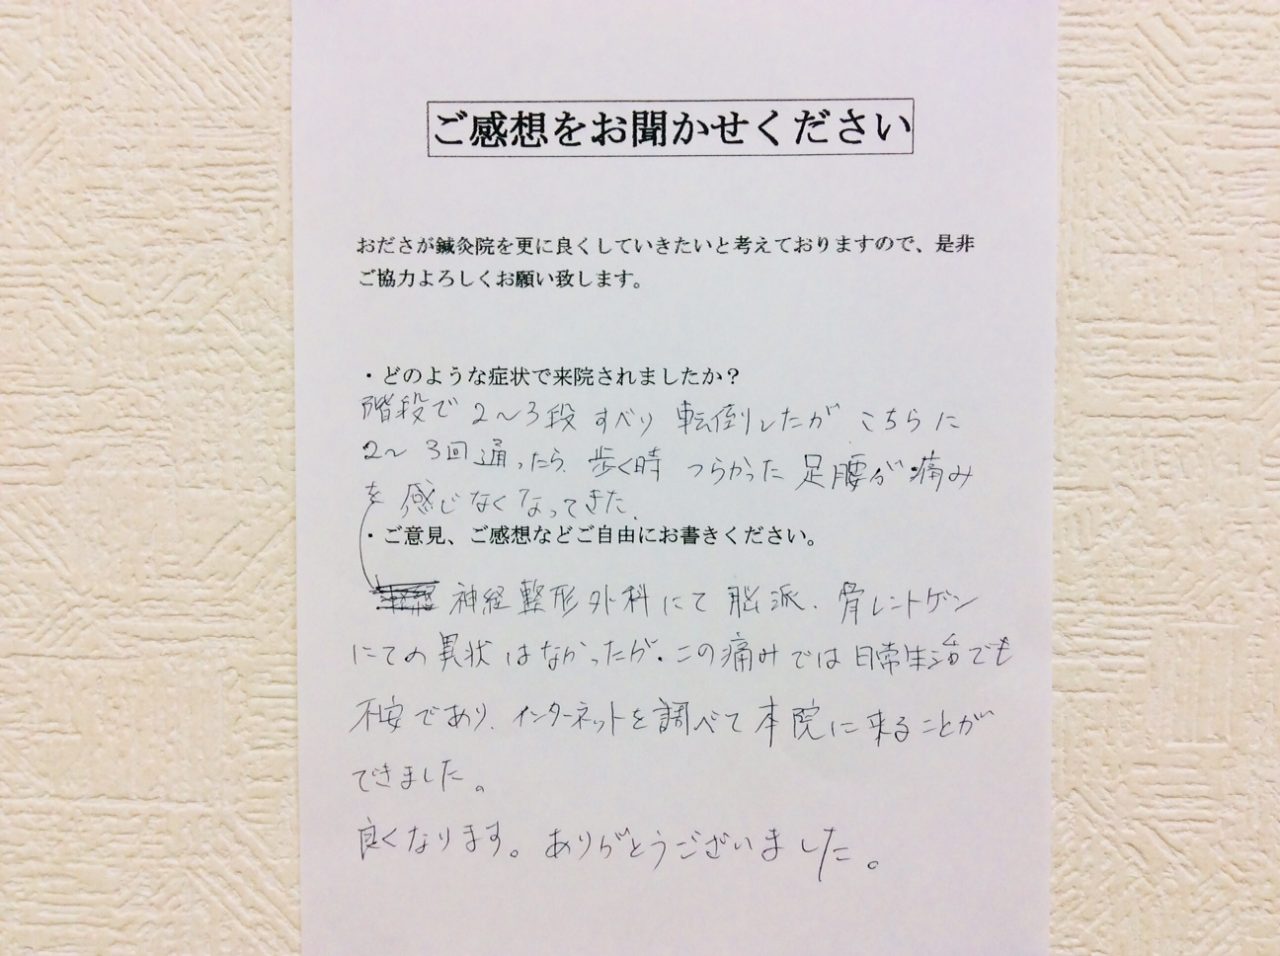 ご感想をお聞かせください
おださが鍼灸院を更に良くしていきたいと考えておりますので、是非
ご協力よろしくお願い致します。
・どのような症状で来院されましたか？
階段で2～3段すべり転倒したが こちらに
2～3回通ったら、歩く時 つらかった足腰が痛み
を感じなくなってきた。
・ご意見、ご感想などご自由にお書きください。
神経整形外科にて脳派、骨レントゲン
にての異状はなかったが、この痛みでは日常生活でも
不安であり、インターネットを調べて本院に来ることが
できました。
良くなります。ありがとうございました。